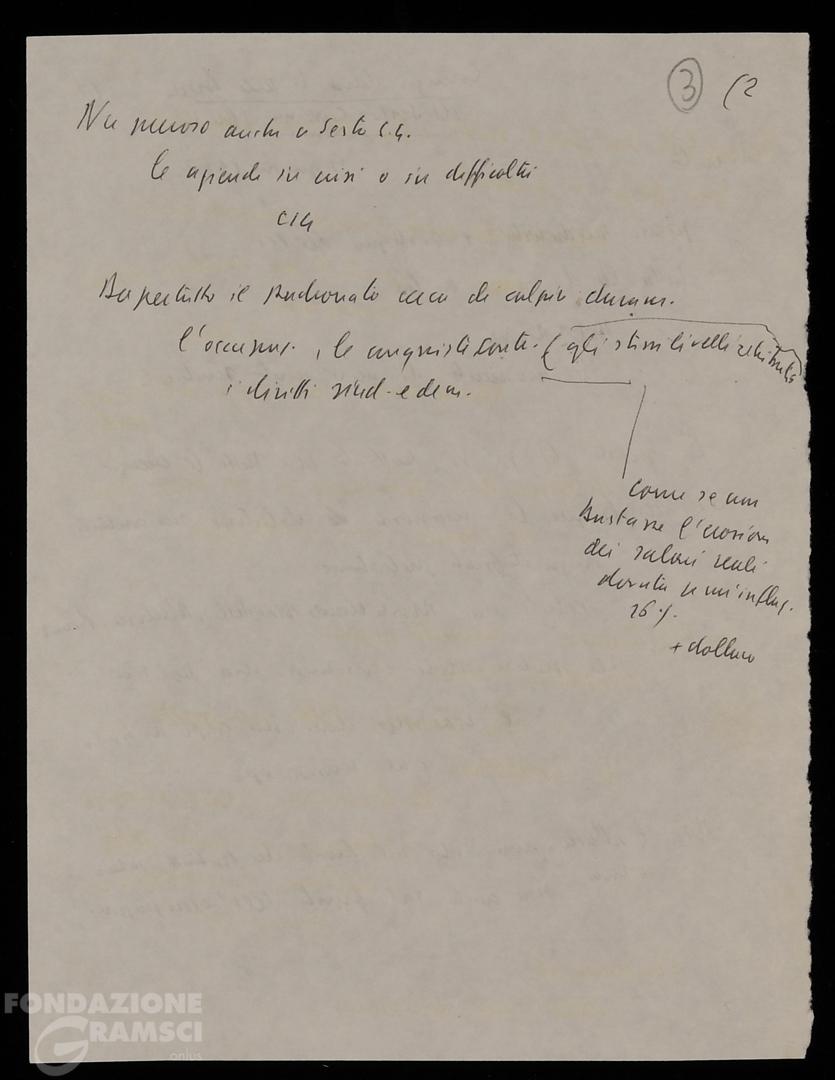 3 (2
Numerose anche a Sesto S.G.
le aziende in crisi o in difficoltà
Dappertutto il padronato cerca di colpire duram.
l'occupaz., le conquiste contr. (gli stessi livelli retributivi
i diritti sind. e dem.
come se non
bastasse l'erosione
dei salari reali
dovuta a un'inflaz.
16 %
+ dollaro
FONDAZIONE
GRAMSCI
onlus